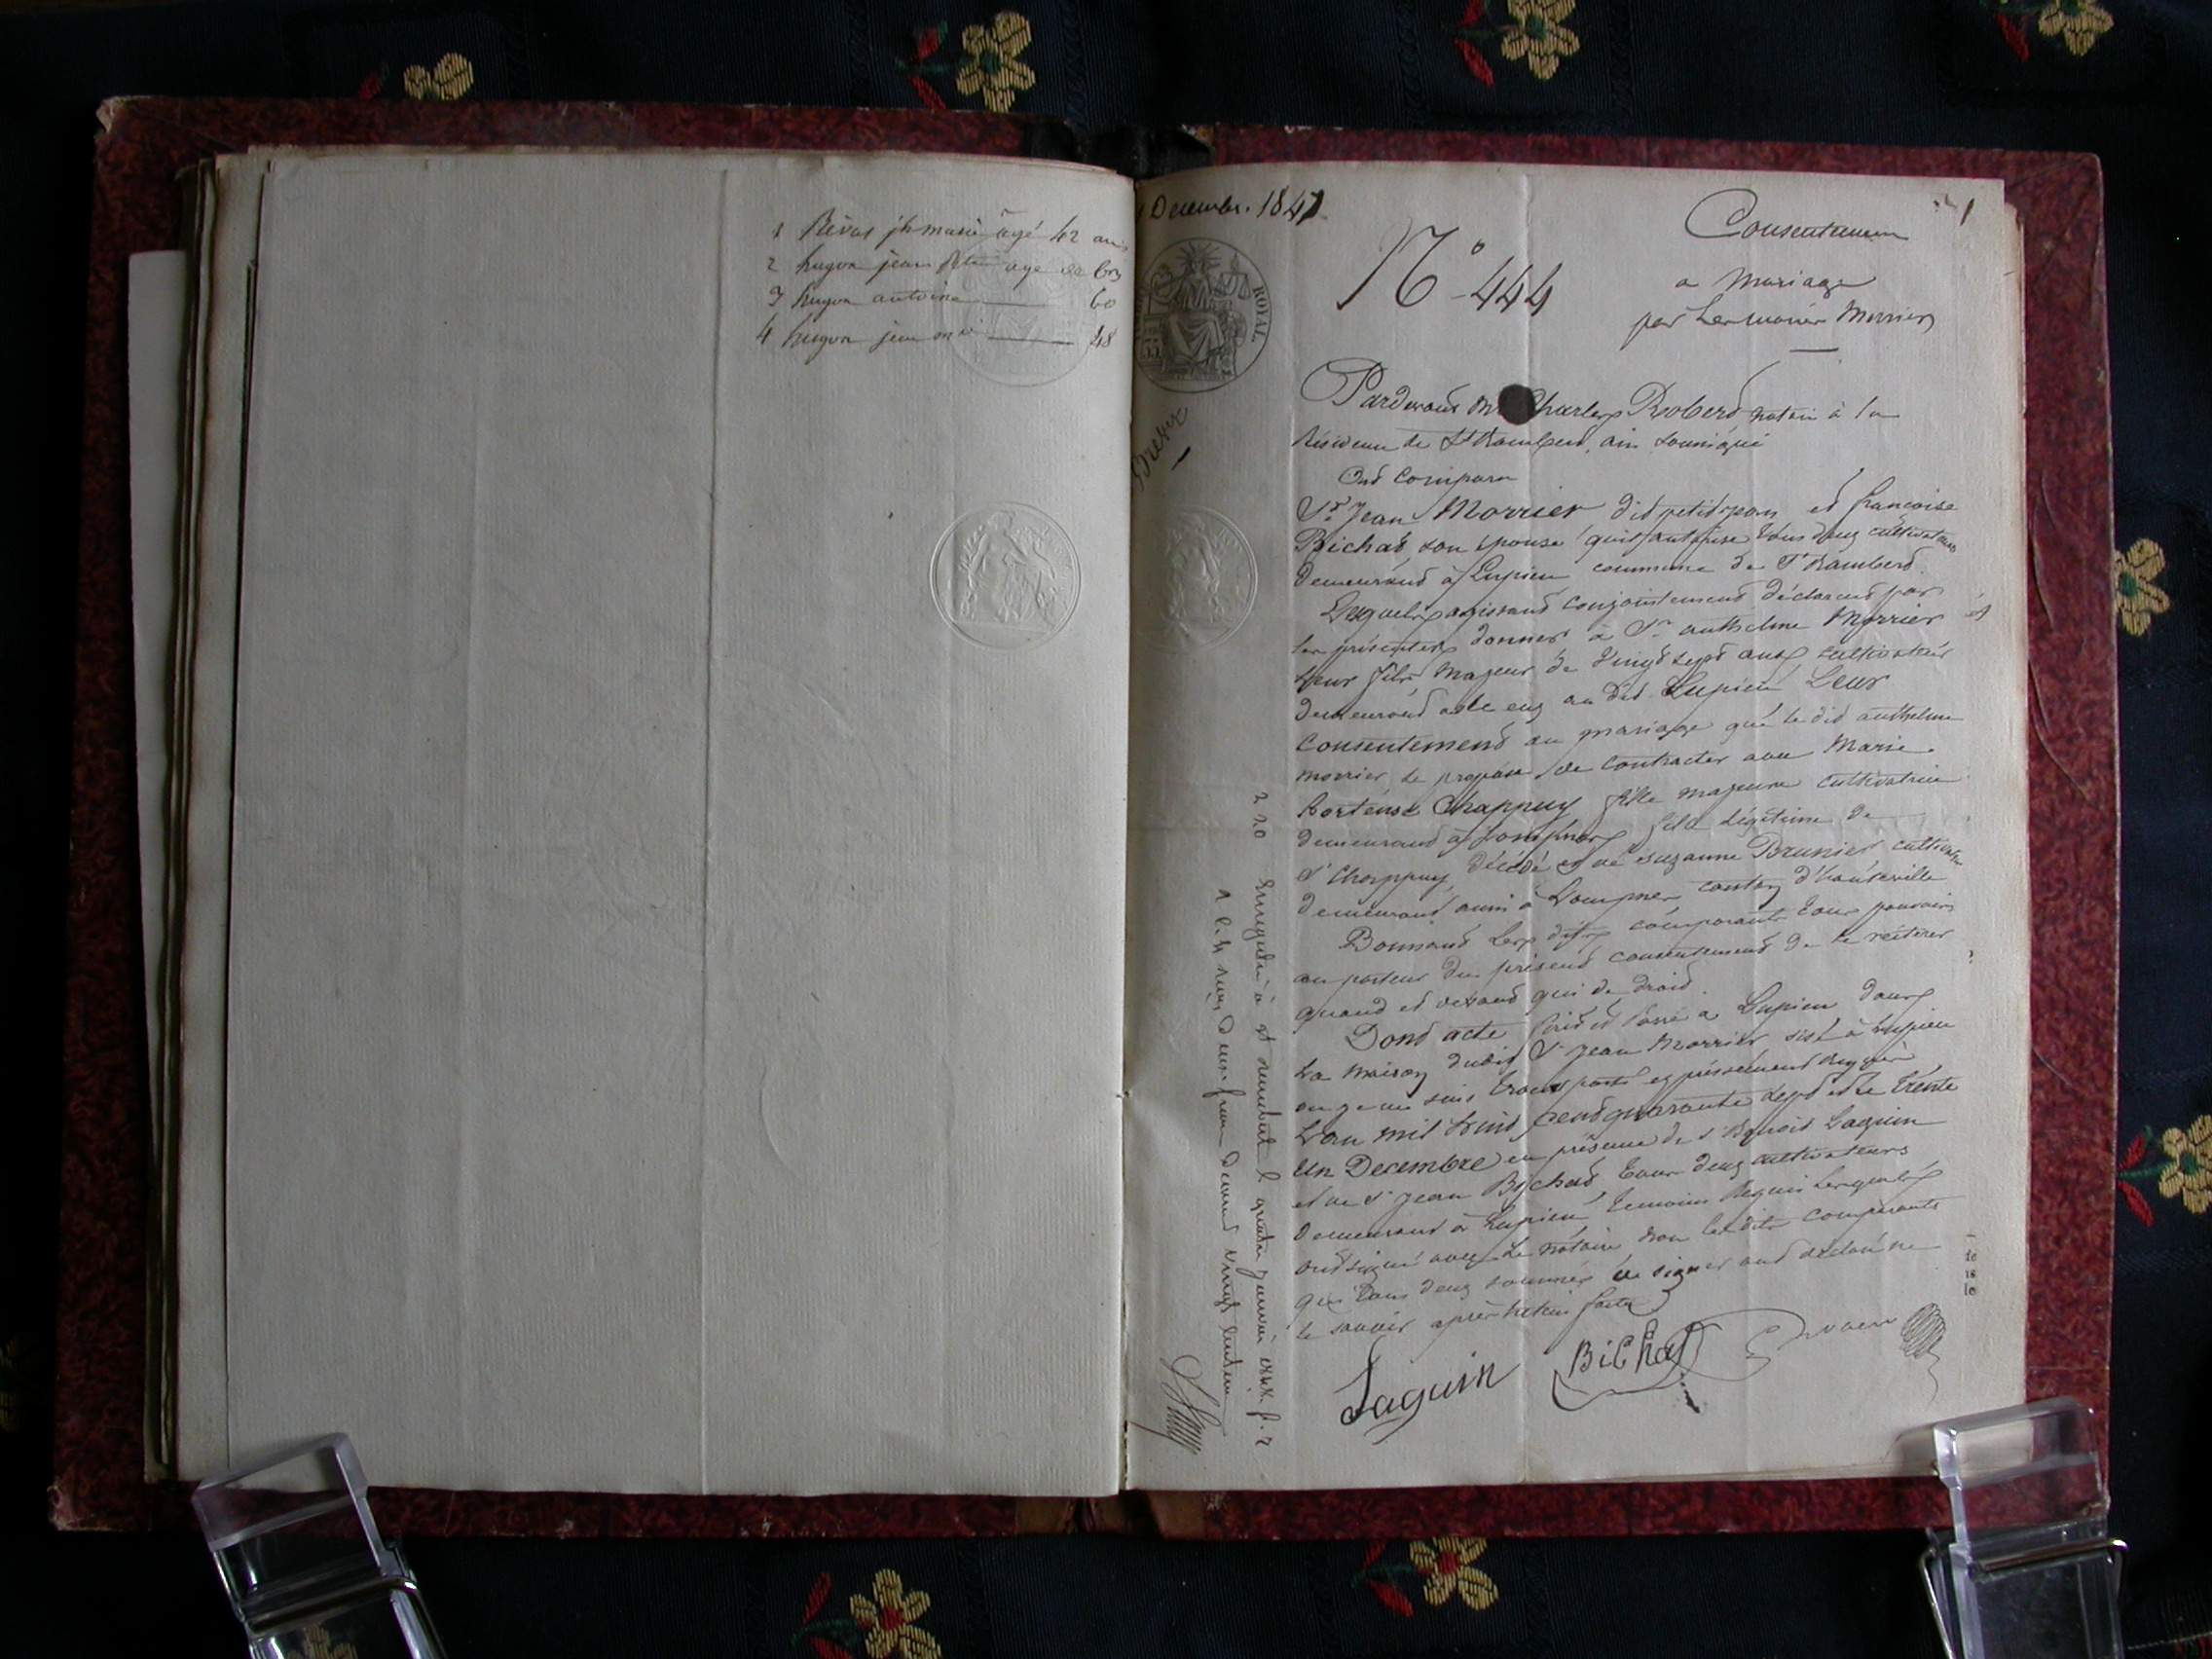 1 Révas jh marie âgé 42 ans
2 hugon jean agé de 60
3 hugon antoine 60
4 hugon jean 48
Decembr. 1847
ROYAL
N° 444
Consentemen
a Mariage
par Les mariés Morrier
Pardevant Me Charles Roberd notaire à la
Résidence de St Rambert, ain soussigné
Ond Comparu
Sr. Jean Morrier dit petit jean et françoise
Bichat, son épouse qu'il autorise tous deux cultivateurs
demeurand à Lupieu commune de St Ramberd.
Lesquels agissand conjointemend déclarend par
les présentes donner à Sr. anthelme Morrier
leur fils majeur de vingd sept ans cultivateur
demeurand avec eux au dit Lupieu Leur
Consentemend au mariage que le did anthelme
morrier se propose de contracter avec Marie
hortense Chappuy fille majeure cultivatrice
demeurand à Lompnes fille légitime de
Sr Chappuy décédé et de Suzanne Brunier cultivatrice
demeurand aussi à Lompnes canton d'hauteville
Donnand les dits comparants tous pouvoirs
au porteur du présend consentemend de le réitérer
quand et devand qui de droid.
Dond acte faid et passé a Lupieu dans
La maison dudit Sr Jean Morrier sise à Lupieu
ou je me suis transporté expréssémend Requis
L'an mil huid cend quarante sept et le trente
un Decembre en présence de Sr Benoit Laguin
et de Sr Jean Bichat tous deux cultivateurs
demeurand à Lupieu, témoins Requis lesquels
ond signé avec le notaire non les dits comparants
qui tous deux sommés de signer ond déclaré ne
le savoir après lecture faite
Laguin Bichat
Enregistré à St Rambert le quatre janvier 1848 f. 2
Reçu deux francs decime vingt centimes